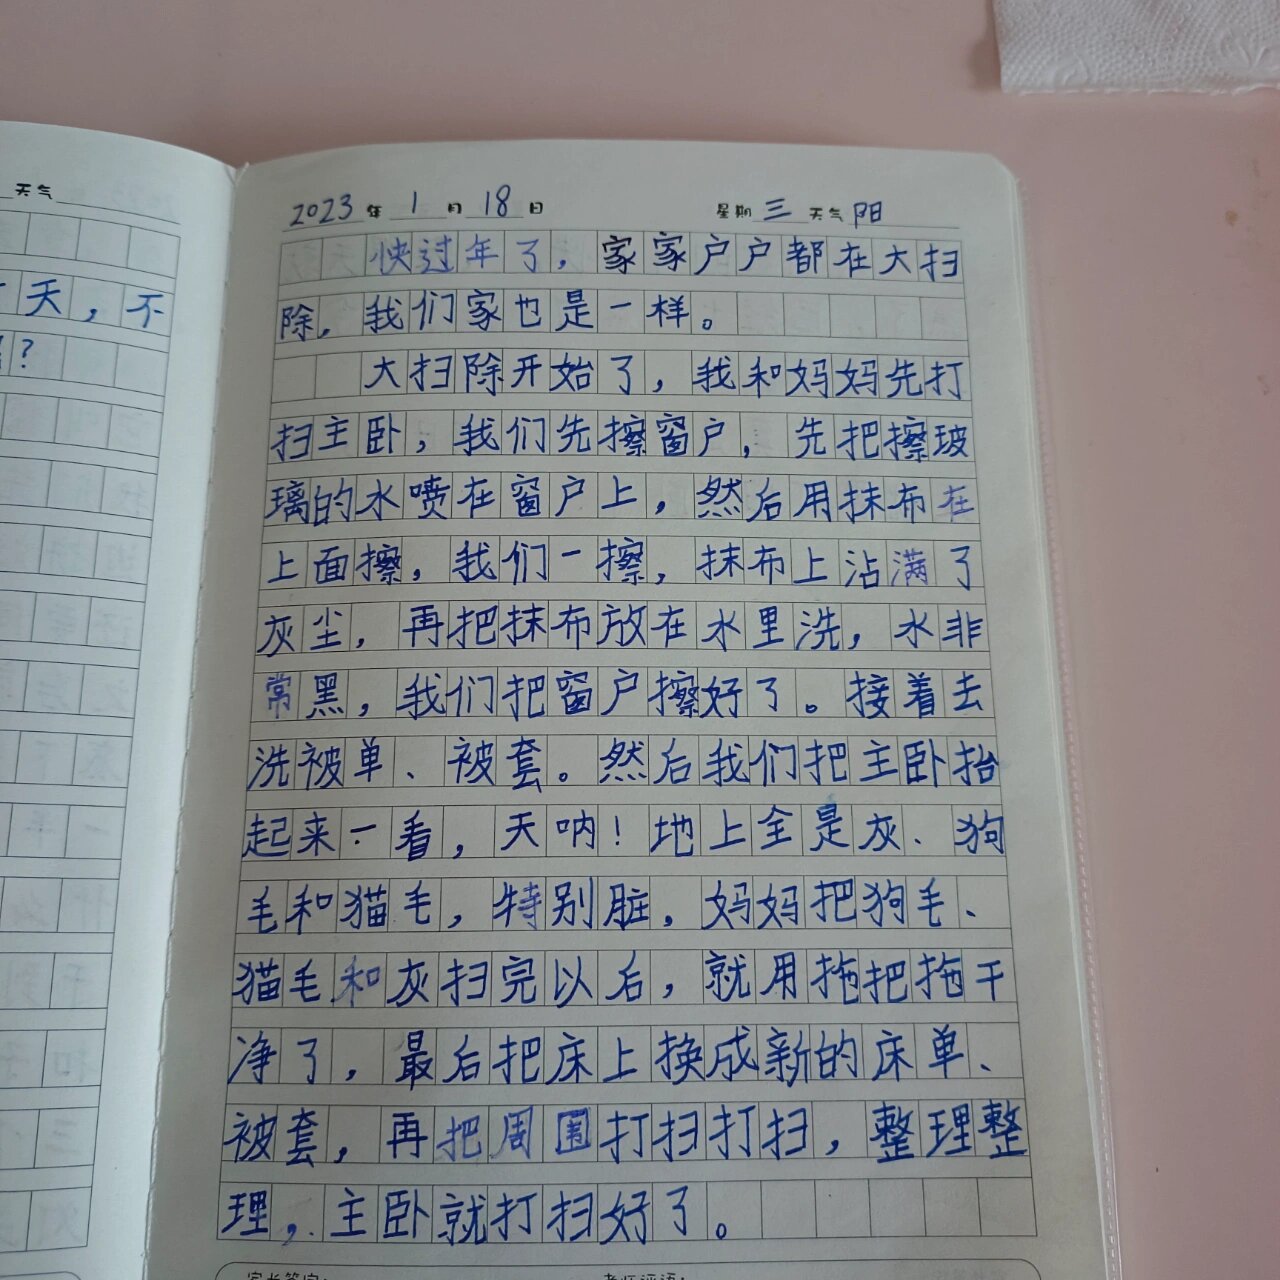 天气
天，不
？
2023年1月18日 星期三 天气阳
快过年了，家家户户都在大扫
除，我们家也是一样。
大扫除开始了，我和妈妈先打
扫主卧，我们先擦窗户，先把擦玻
璃的水喷在窗户上，然后用抹布在
上面擦，我们一擦，抹布上沾满了
灰尘，再把抹布放在水里洗，水非
常黑，我们把窗户擦好了。接着去
洗被单、被套。然后我们把主卧抬
起来一看，天呐！地上全是灰、狗
毛和猫毛，特别脏，妈妈把狗毛、
猫毛和灰扫完以后，就用拖把拖干
净了，最后把床上换成新的床单、
被套，再把周围打扫打扫，整理整
理，主卧就打扫好了。
家长签字： 老师评语：